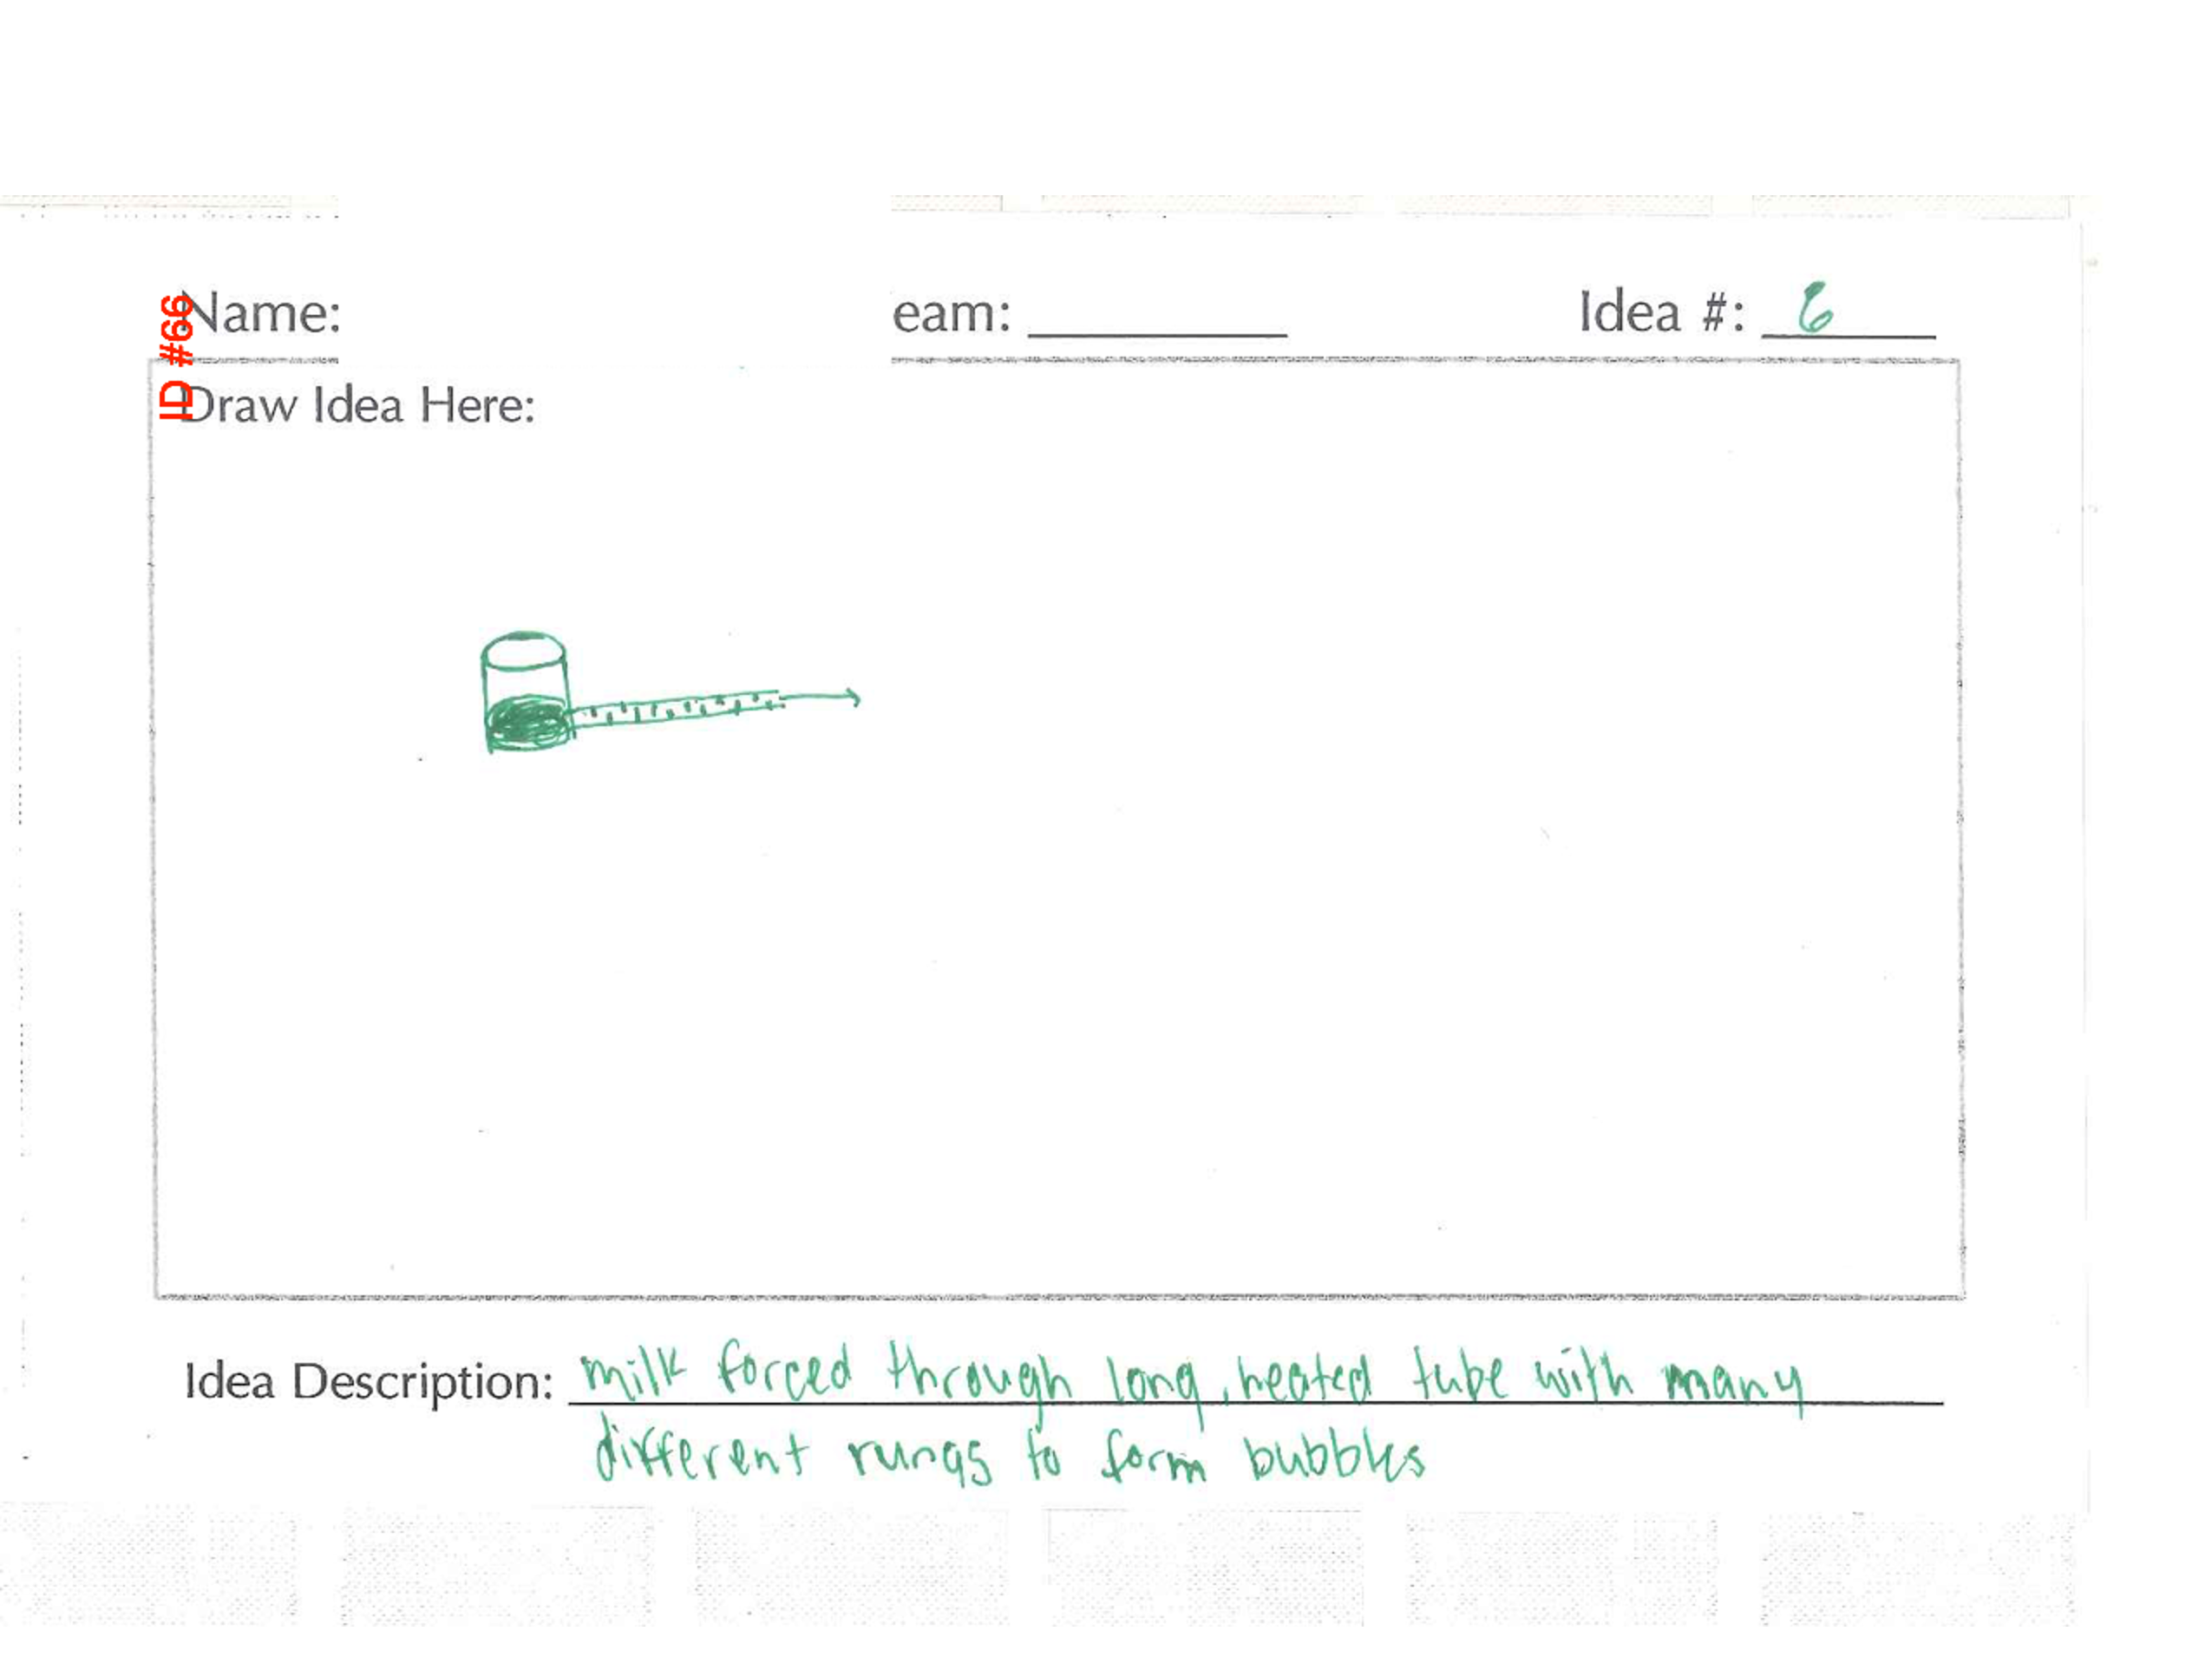 ID #66
Name: eam: Idea #: 6
Draw Idea Here:
Idea Description: milk forced through long, heated tube with many
different rungs to form bubbles